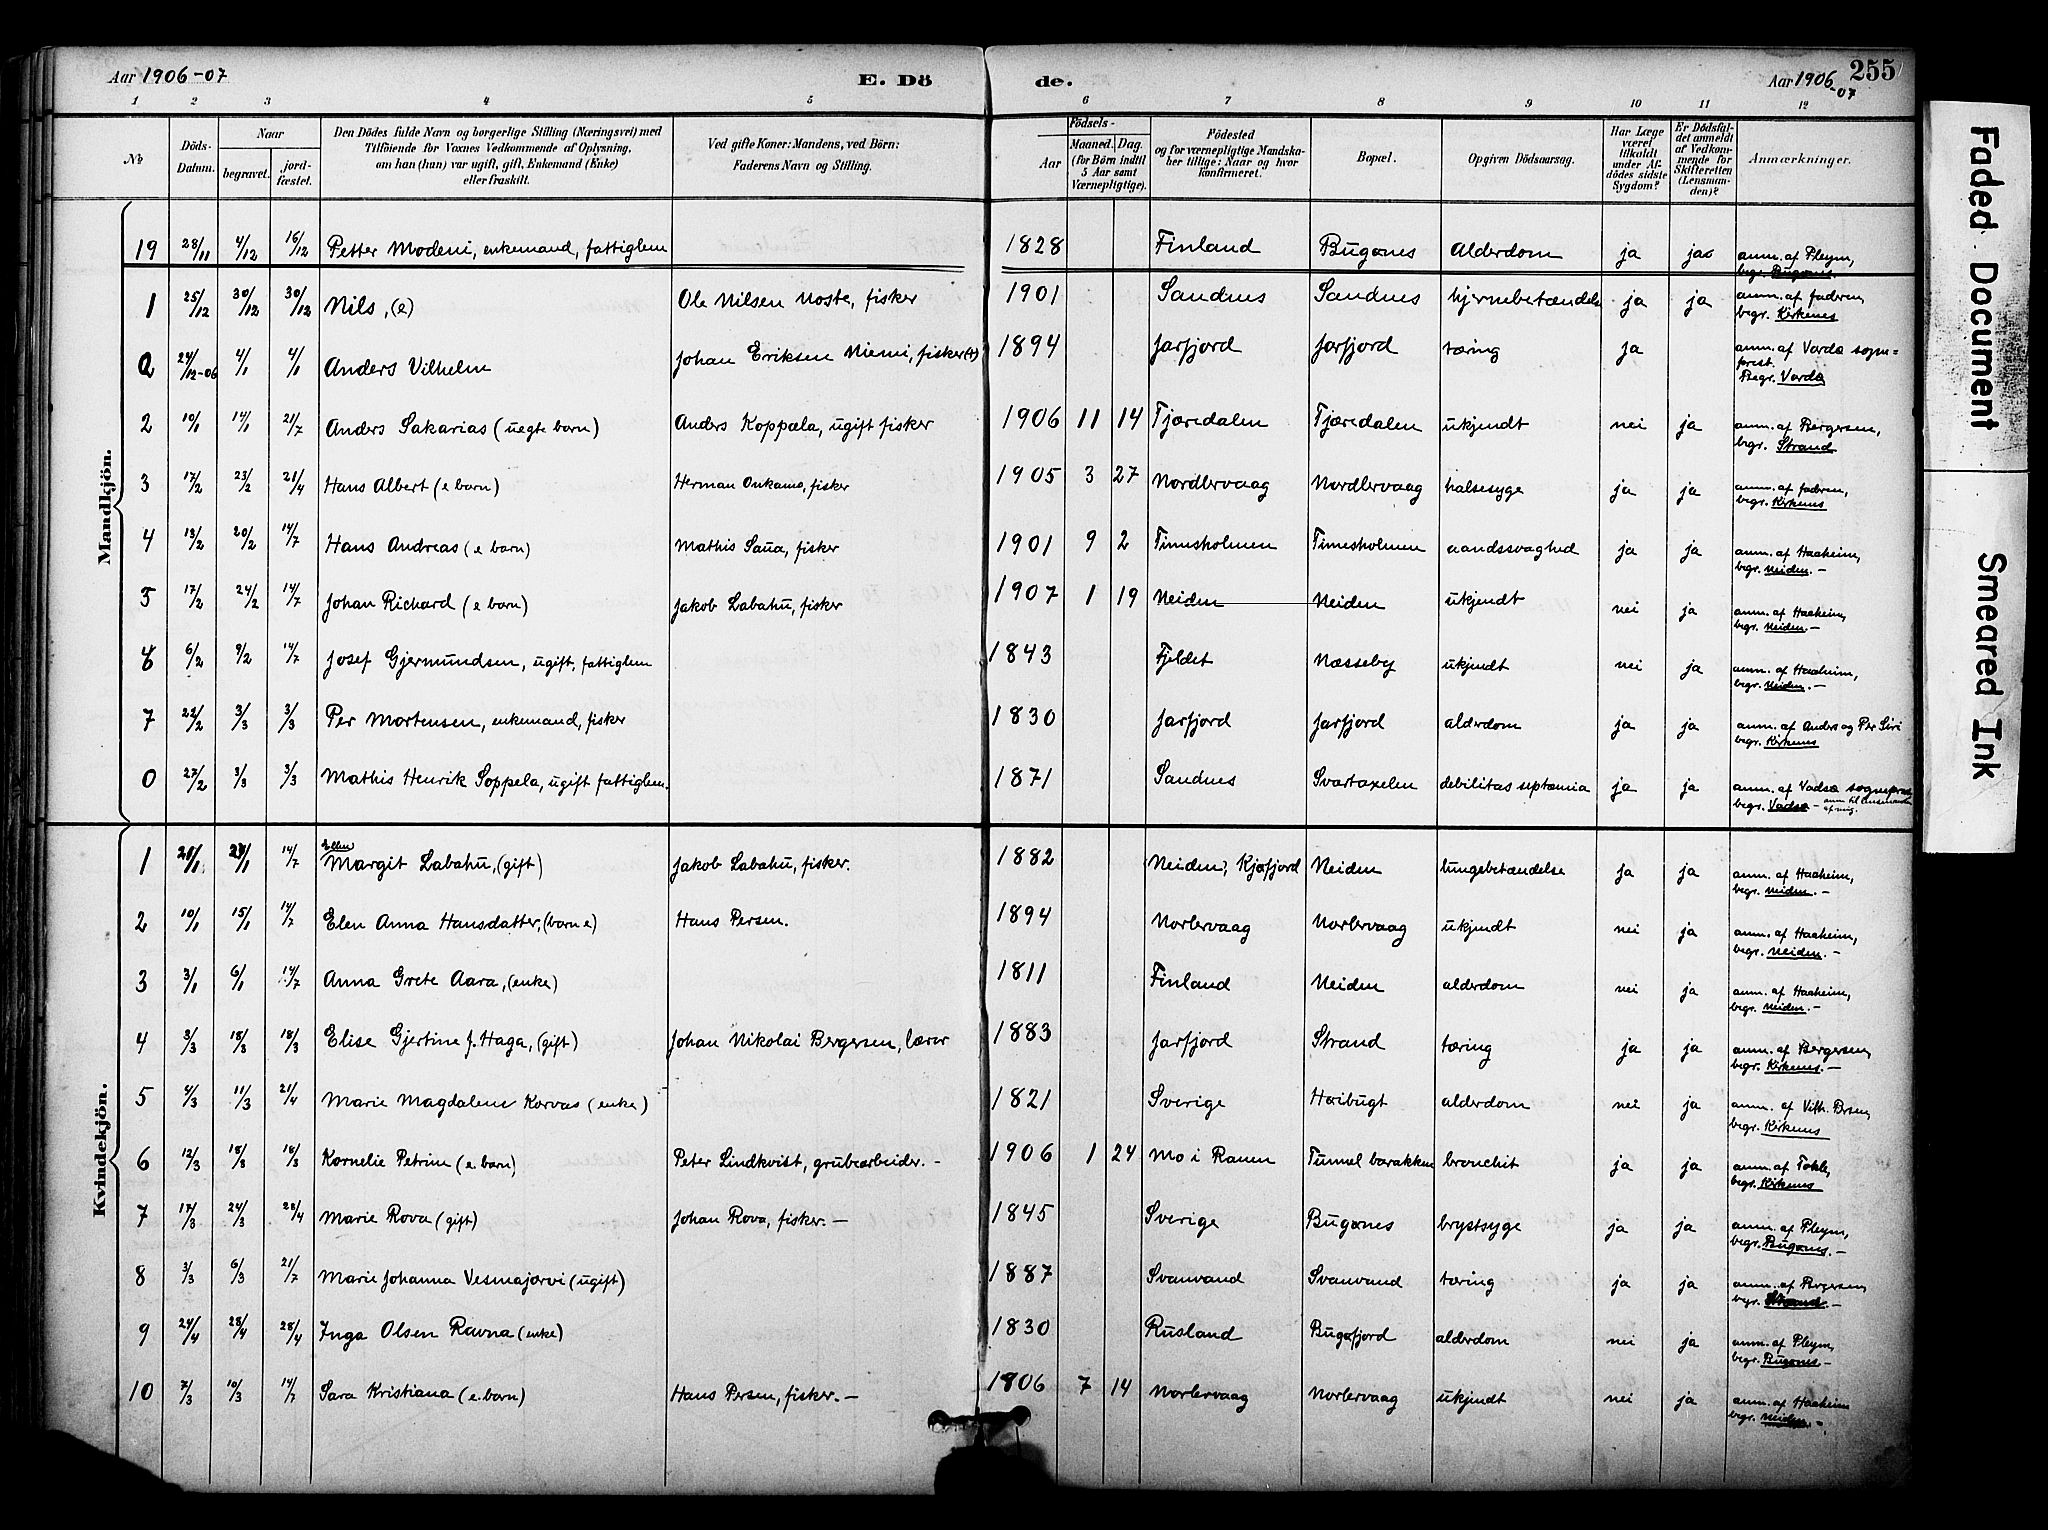 Aar 1906-07 E. Dö
de. Aar 1906-07 255
1 2 3 4 5 6 7 8 9 10 11 12
No. Döds-Datum. Naar begravet. jordfæstet. Den Dödes fulde Navn og borgerlige Stilling (Næringsvei) med Tilföiende for Voxnes Vedkommende af Oplysning, om han (hun) var ugift, gift, Enkemand (Enke) eller fraskilt. Ved gifte Koner: Mandens, ved Börn: Faderens Navn og Stilling. Födsels- Aar Maaned. Dag. (for Börn indtil 5 Aar samt Værnepligtige). Födested og for værnepligtige Mandskaber tillige: Naar og hvor konfirmeret. Bopæl. Opgiven Dödsaarsag. Har Læge været tilkaldt under Afdödes sidste Sygdom? Er Dödsfaldet anmeldt af Vedkommende for Skifteretten (Lensmanden)? Anmærkninger.
Mandkjön.
19 28/11 4/12 16/12 Petter Modeni, enkemand, fattiglem 1828 Finland Bugønes Alderdom ja ja anm. af Pleym, begr. Bugønes.
1 25/12 30/12 30/12 Nils, (e) Ole Nilsen Noste, fisker 1901 Sandnes Sandnes hjernebetændelse ja ja anm. af faderen, begr. Kirkenes
0 24/12-06 4/1 4/1 Anders Vilhelm Johan Eriksen Niemi, fisker(+) 1894 Jarfjord Jarfjord tæring ja anm. af Vardø sognprest. Begr. Vardø
2 10/1 14/1 21/7 Anders Sakarias (uegte barn) Anders Koppæla, ugift fisker 1906 11 14 Tjæredalen Tjæredalen ukjendt nei ja anm. af Bergersen, begr. Strand
3 17/2 23/2 21/4 Hans Albert (e barn) Herman Onkamo, fisker 1905 3 27 Nordlervaag Nordlervaag halsesyge ja ja anm. af faderen, begr. Kirkenes
4 13/2 20/2 14/7 Hans Andreas (e barn) Mathis Saua, fisker 1901 9 2 Timesholmen Timesholmen aandssvaghed ja ja anm. af Haaheim, begr. Neiden.-
5 17/2 24/2 14/7 Johan Richard (e barn) Jakob Labahu, fisker 1907 1 19 Neiden Neiden ukjendt nei ja anm. af Haaheim, begr. Neiden.-
6 6/2 9/2 14/7 Josef Gjermundsen, ugift, fattiglem 1843 Fjeldet Næsseby ukjendt nei ja anm. af Haaheim, begr. Neiden.-
7 22/2 3/3 3/3 Per Mortensen, enkemand, fisker 1830 Jarfjord Jarfjord alderdom ja ja anm. af Anders og Per Siri begr. Kirkenes
0 27/2 3/3 3/3 Mathis Henrik Soppela, ugift fattiglem. 1871 Sandnes Svartaxelen debilitas septæmia ja ja anm. af Vadsø sogneprest, begr. Vadsø - anm til lensmanden af mig.
Kvindekjön.
1 21/1 14/7 Ellen Margit Labahu, (gift) Jakob Labahu, fisker. 1882 Neiden, Kjøfjord Neiden lungebetændelse ja ja anm. af Haaheim, begr. Neiden.-
2 10/1 15/1 14/7 Elen Anna Hansdatter, (barn e) Hans Persen. 1894 Norlervaag Norlervaag ukjendt nei ja anm. af Haaheim, begr. Neiden.-
3 3/1 6/1 14/7 Anna Grete Aara, (enke) 1811 Finland Neiden alderdom nei ja anm. af Haaheim, begr. Neiden.-
4 3/3 18/3 18/3 Elise Gjertine f. Haga, (gift) Johan Nikolai Bergersen, lærer 1883 Jarfjord Strand tæring ja ja anm. af Bergersen, begr. Kirkenes.-
5 4/3 11/3 21/4 Marie Magdalena Korvas (enke) 1821 Sverige Høibugt alderdom nei ja anm. af Vilh. begr. Kirkenes
6 12/3 18/3 18/3 Kornelie Petrine (e. barn) Peter Lindkvist, grubearbeider.- 1906 1 24 Mo i Ranen Tunnel barakken bronchit ja ja anm. af Tokle, begr. Kirkenes
7 17/3 24/3 28/4 Marie Rova (gift) Johan Rova, fisker.- 1845 Sverige Bugønes brystsyge ja ja anm. af Pleym, begr. Bugønes.-
8 3/3 6/3 21/7 Marie Johanna Vesmajærvi (ugift) 1887 Svanvand Svanvand tæring ja ja anm. af Bergersen, begr. Strand.-
9 24/4 28/4 28/4 Inga Olsen Ravna (enke) 1830 Rusland Bugøfjord alderdom nei ja anm. af Pleym, begr. Bugønes.-
10 7/3 10/3 14/7 Sara Kristiana (e. barn) Hans Persen, fisker.- 1906 7 14 Norlervaag Norlervaag ukjendt nei ja anm. af Haaheim begr. Neiden.-
Faded Document
Smeared Ink